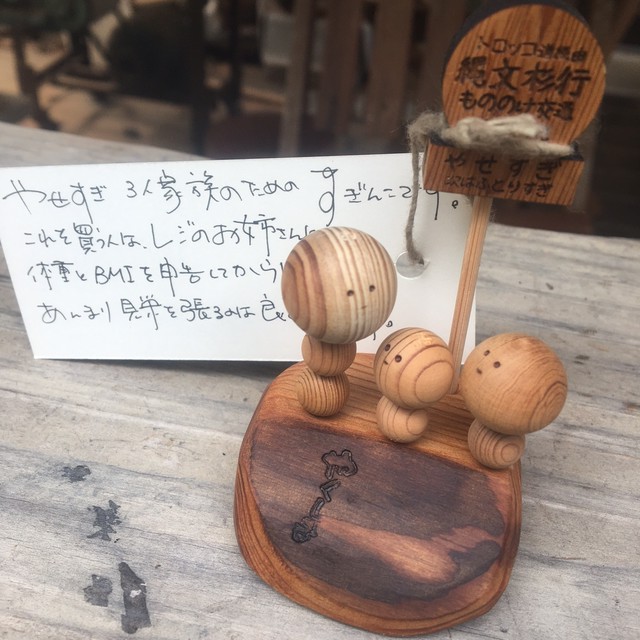 やせすぎ 3人家族のための すぎんこです。
これを買う人は、レジのお姉さんに
体重とBMIを申告してから
あんまり見栄を張るのは良
トロッコ
縄文杉行
もののけ
やせすぎ
又はふとりすぎ